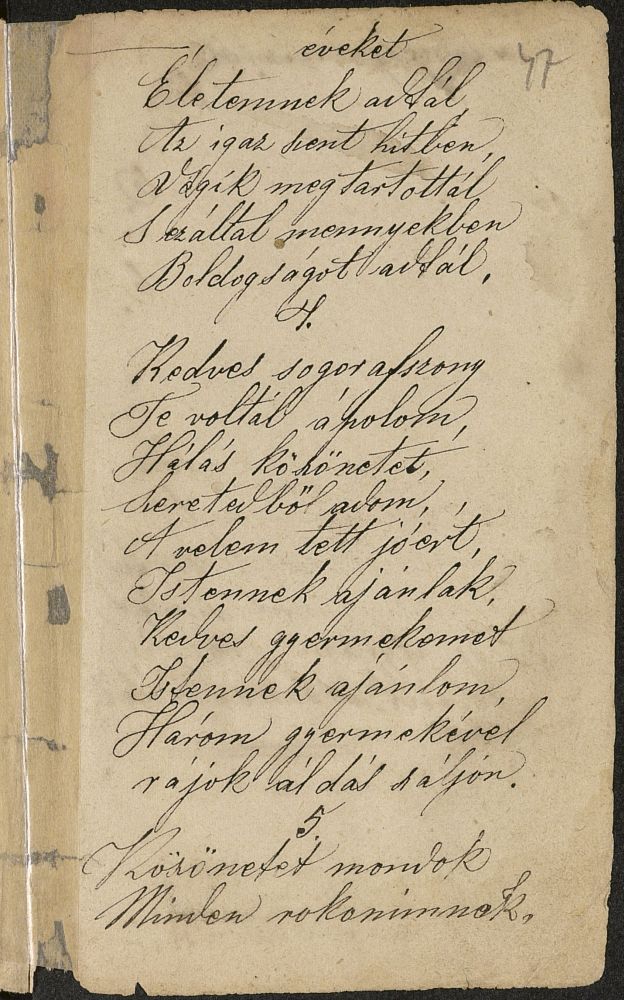 éveket 47
Életemnek adtál
Az igaz szent hitben,
Végik megtartottál
S ezáltal mennyekben
Boldogságot adtál,
4.
Kedves sogorafszony
Te voltál ápolom,
Hálás köszönetet,
Szeretedből adom,
A velem tett jóért,
Istennek ajánlak,
Kedves gyermekemet
Istennek ajánlom,
Három gyermekével
rájok áldás száljon.
5.
Köszönetet mondok
Minden rokonimnek,